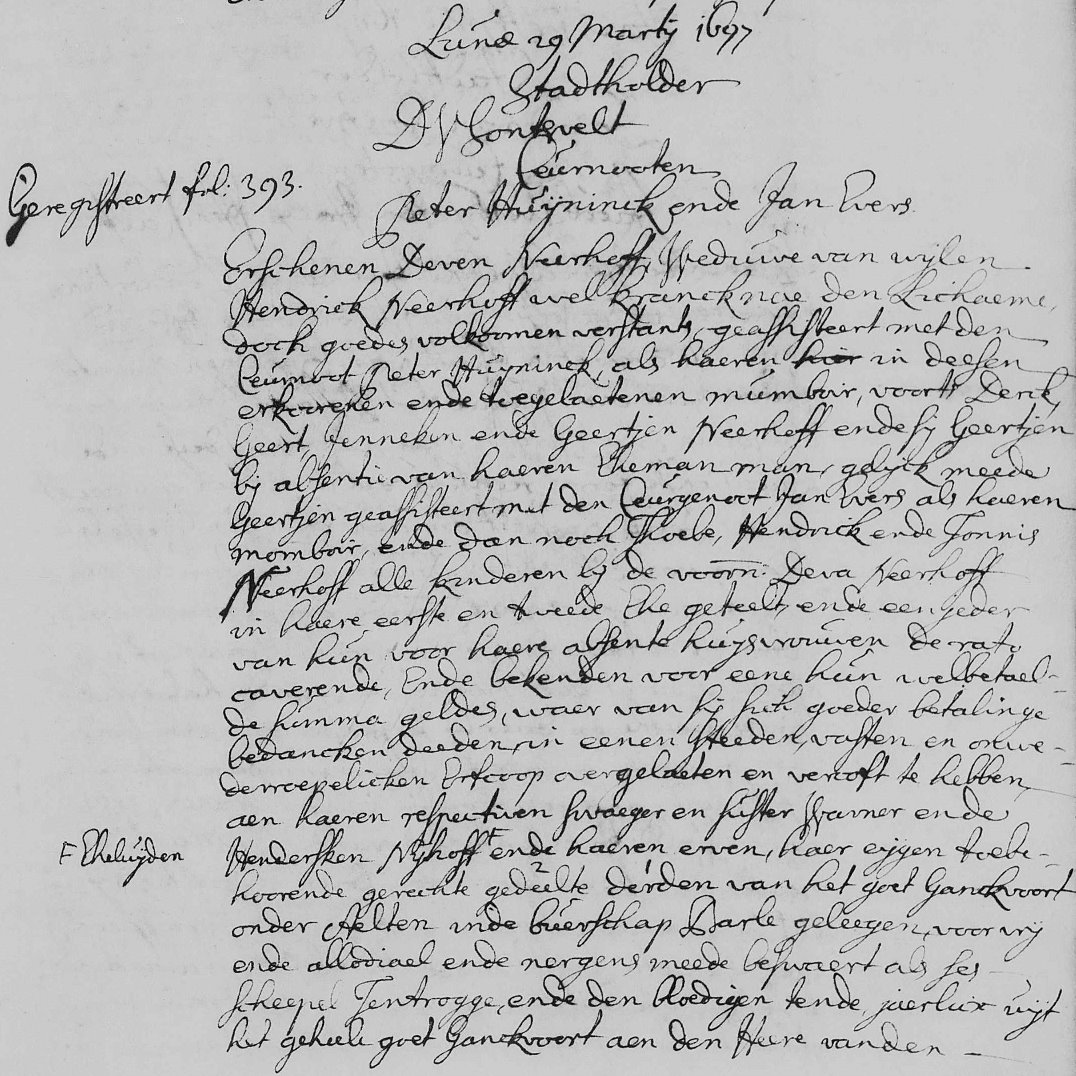 Lunæ 29 Martij 1697
Stadtholder
D V Hontsvelt
Ceurnooten
Geregistreert fol: 393.
Peter Huijninck ende Jan Evers
Erschenen Deven Neerhoff, Weduwe van wijlen
Hendrick Neerhoff wel kranck nae den Lichaeme,
doch goedes volkoomen verstants, geassisteert met den
Ceurnoot Peter Huijninck, als haeren hier in deesen
erkoorenen ende toegelaetenen mumboir, voorts Derck,
Geert, Jenneken ende Geertjen Neerhoff ende sij Geertjen
bij absentie van haeren Eheman man, gelijck meede
Geertjen geassisteert met den Ceurgenoot Jan Evers als haeren
momboir, ende dan noch Thoebe, Hendrick ende Tonnis
Neerhoff alle kinderen bij de voorn: Deva Neerhoff
in haere eerste en tweede Ehe geteelt, ende een jeder
van hun voor haere absente huijsvrouwen de rato
caverende, Ende bekenden voor eene hun welbetael-
de summa geldes, waer van sij sich goeder betalinge
bedancken deeden, in eenen steeden, vasten en onwe-
derroepelicken Erfcoop overgelaeten en vercoft te hebben,
aen haeren respectiven swaeger en suster Warner ende
F Eheluijden
Hendersken Nijhoff F ende haeren erven, haer eijgen toebe-
hoorende gerechte gedeelte derden van het goet Ganckvoort
onder Aelten inde buerschap Barle geleegen, voor vrij
ende allodiael ende nergens meede beswaert als ses
scheepel Tentrogge, ende den Bloedigen tende, jaerlix uijt
het geheele goet Ganckvoort aen den Heere van den